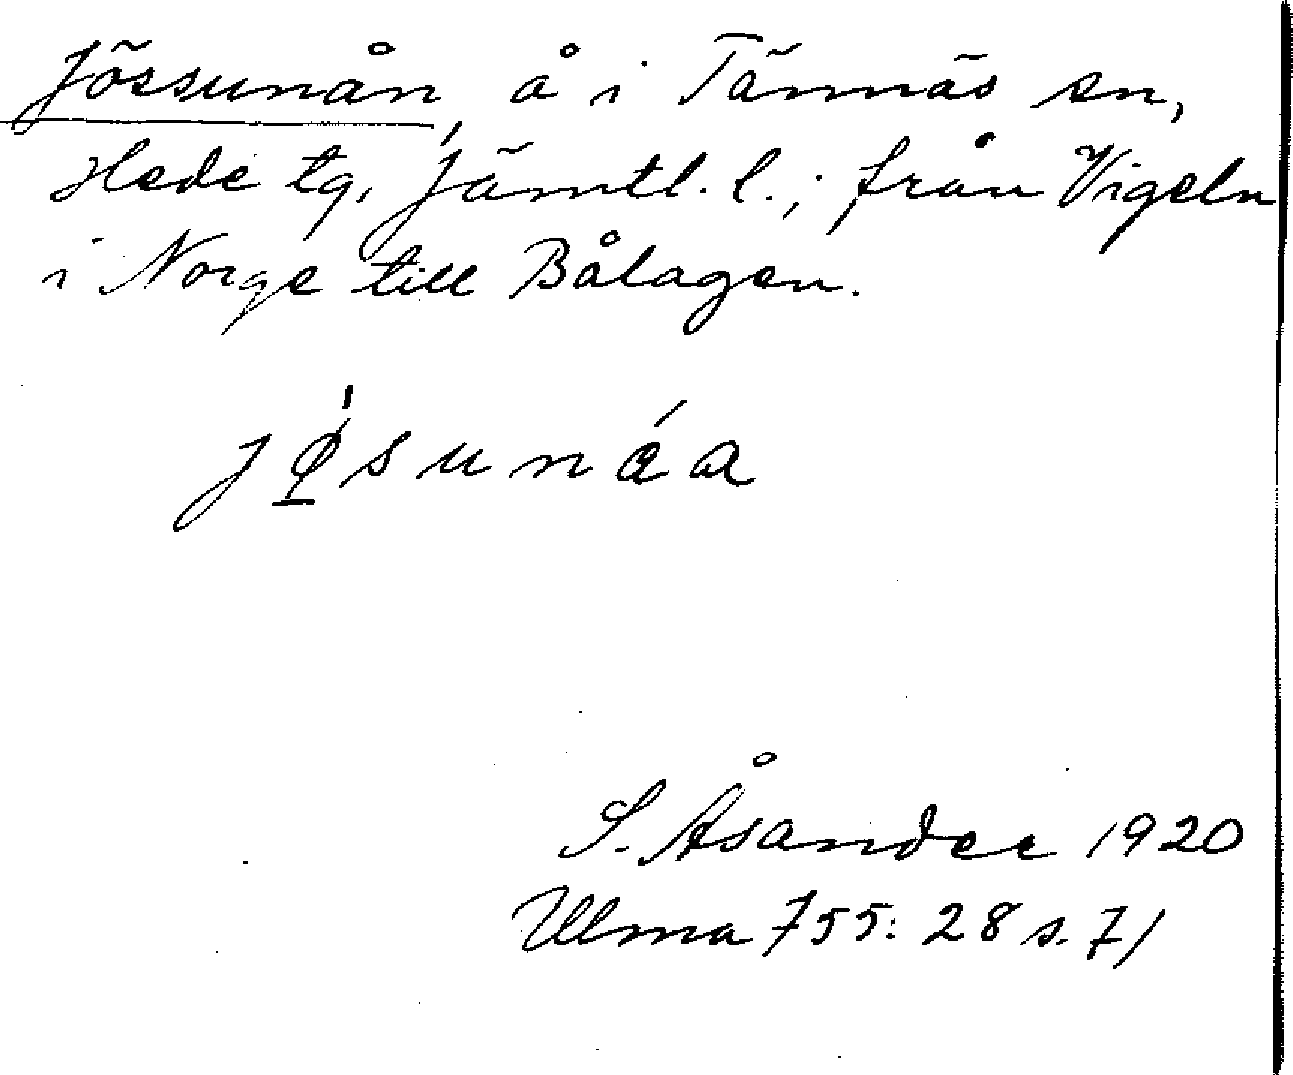 Jössunån, å i Tännäs sn,
Hede tg, Jämtl. l.; från Vigeln
i Norge till Bålagen.
jǿ̱sunáa
S. Åsander 1920
Ulma 755: 28 s. 71